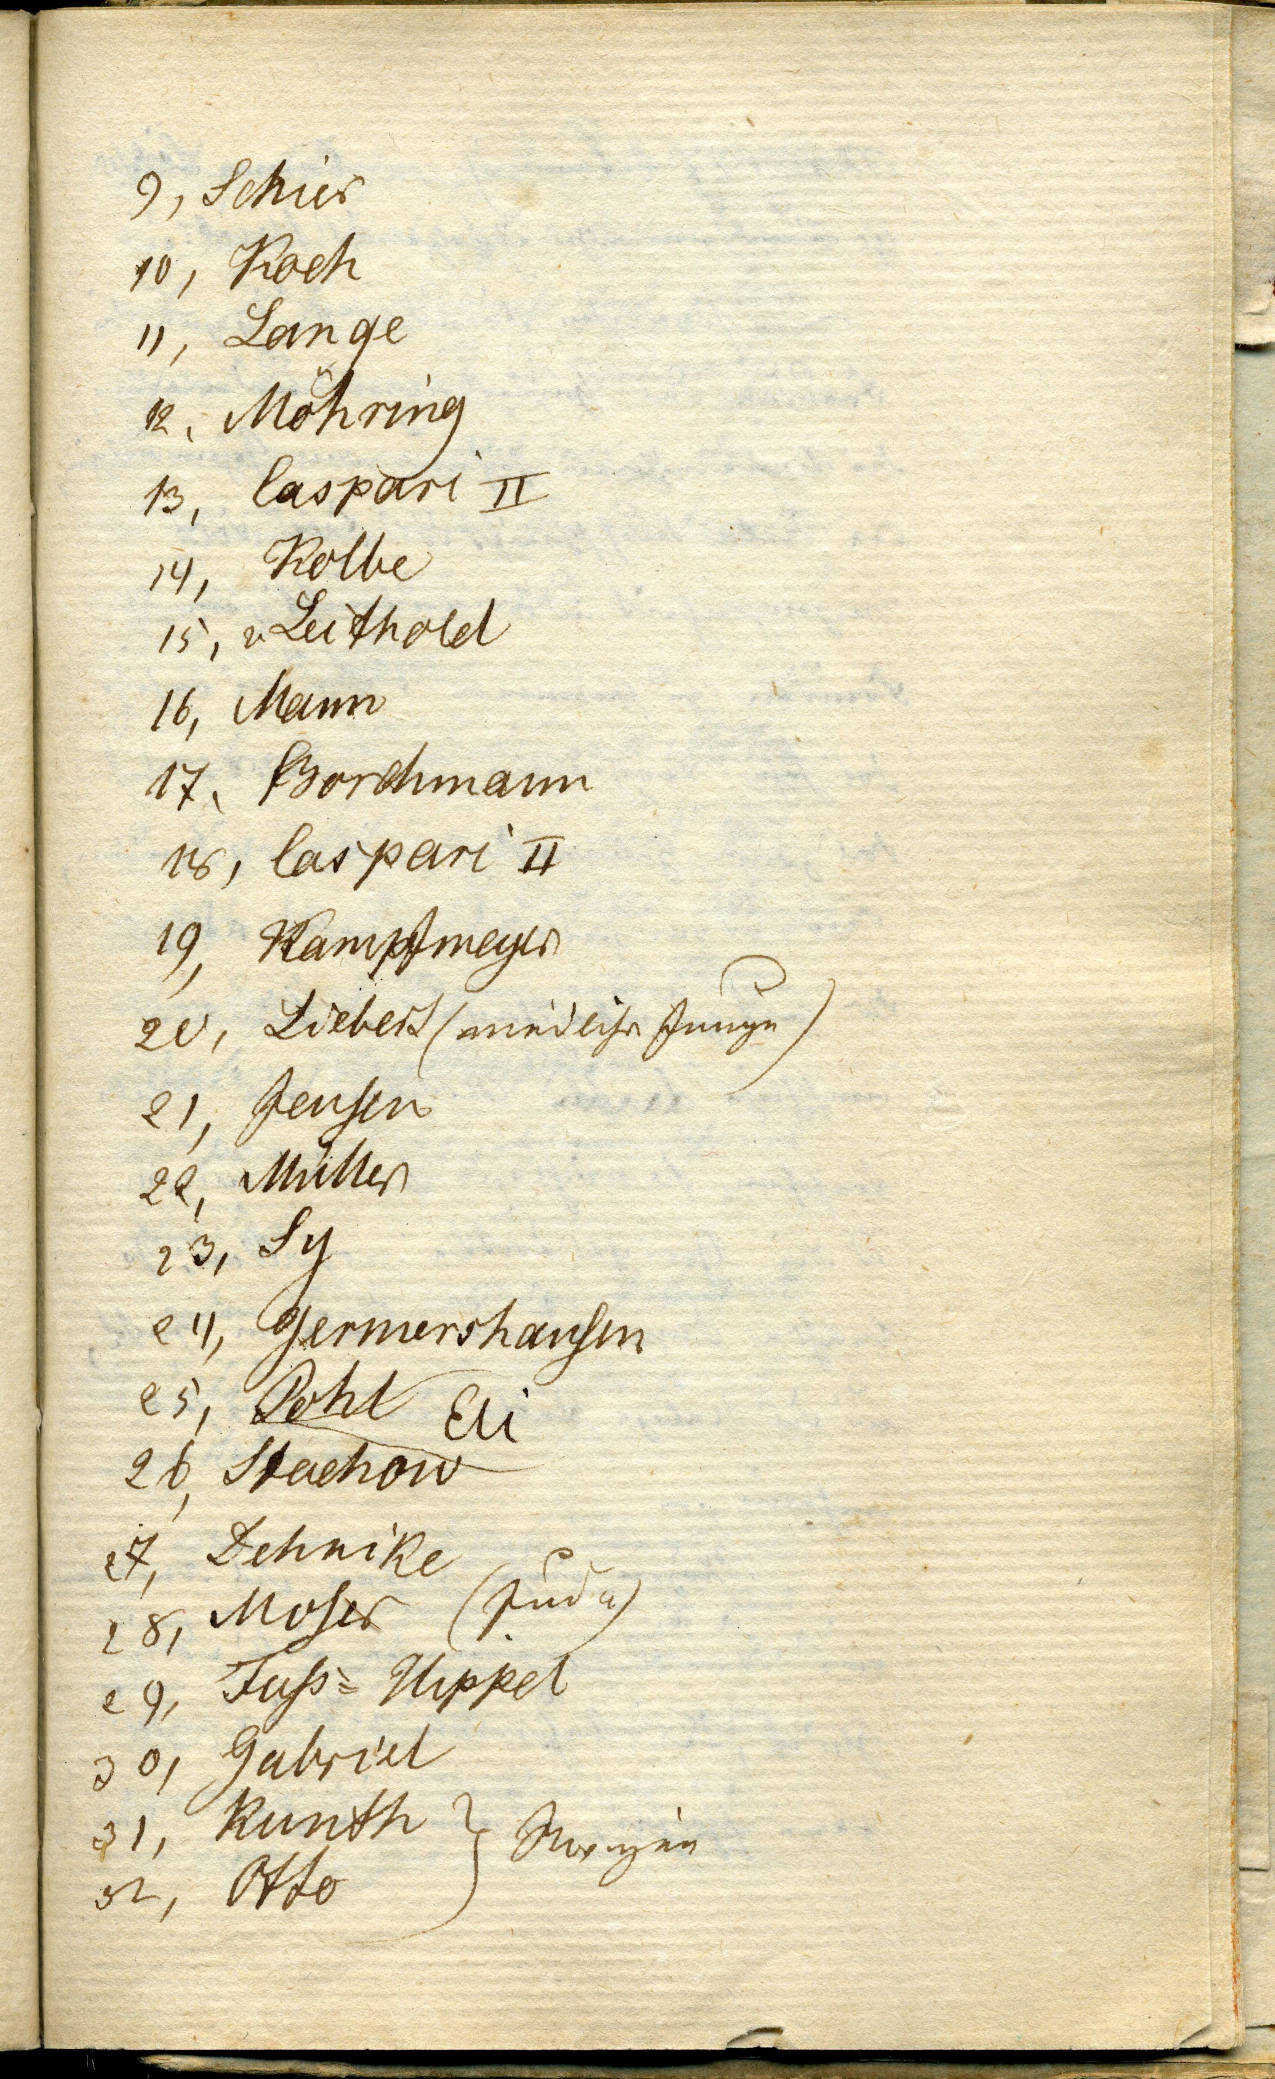 9, Schier
10, Koch
11, Lange
12, Möhring
13, Caspari II
14, Kolbe
15, v Leithold
16, Mann
17, Borchmann
18, Caspari II
19, Kampfmeyer
20, Liebert (niedlicher Junge)
21, Jensen
22, Müller
23, Sy
24, Germershausen
25, Pohl Eli
26, Stachow
27, Dehnike
28, Moser (Jude)
29, Fuß=Hippel
30, Gabriel
31, Kunth
32, Otto